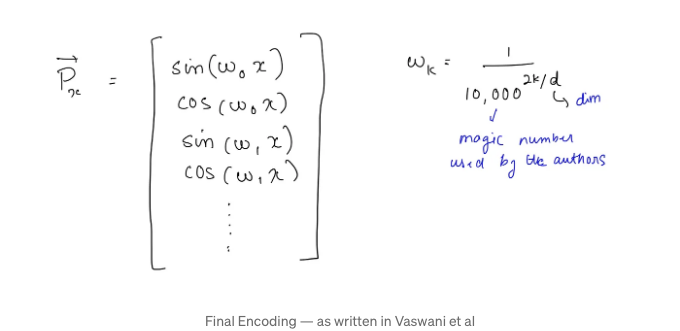 P⃗ₓ = [ sin(ω₀ x)
cos(ω₀ x)
sin(ω₁ x)
cos(ω₁ x)
⋮ ]
ωₖ = 1 / 10,000^(2k/d)
↳ dim
magic number
used by the authors
Final Encoding — as written in Vaswani et al